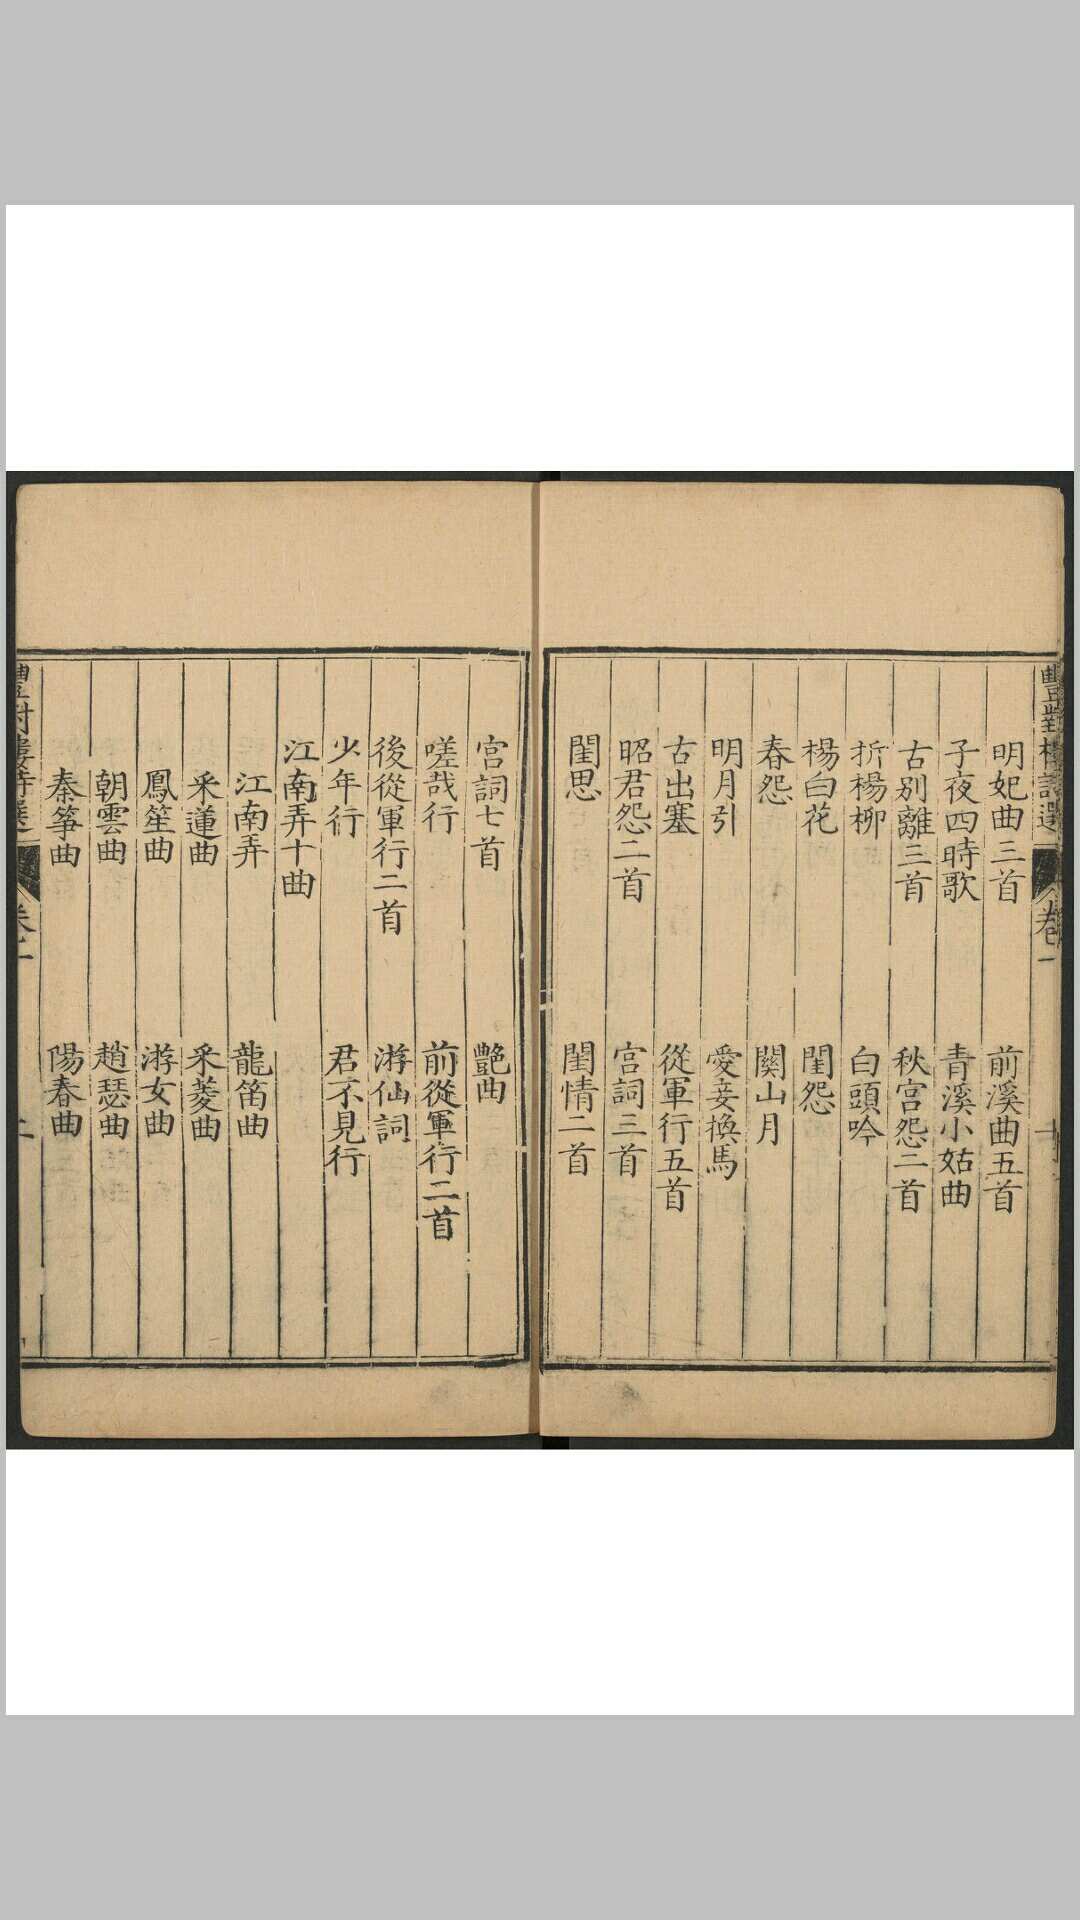 豐對樓詩選
卷一
明妃曲三首 前溪曲五首
子夜四時歌 青溪小姑曲
古別離三首 秋宮怨二首
折楊柳 白頭吟
楊白花 閨怨
春怨 關山月
明月引 愛妾換馬
古出塞 從軍行五首
昭君怨二首 宮詞三首
閨思 閨情二首
宮詞七首 艷曲
嗟哉行 前從軍行二首
後從軍行二首 游仙詞
少年行 君不見行
江南弄十曲
江南弄 龍笛曲
釆蓮曲 釆菱曲
鳳笙曲 游女曲
朝雲曲 趙瑟曲
秦箏曲 陽春曲
豐對樓詩選
卷一